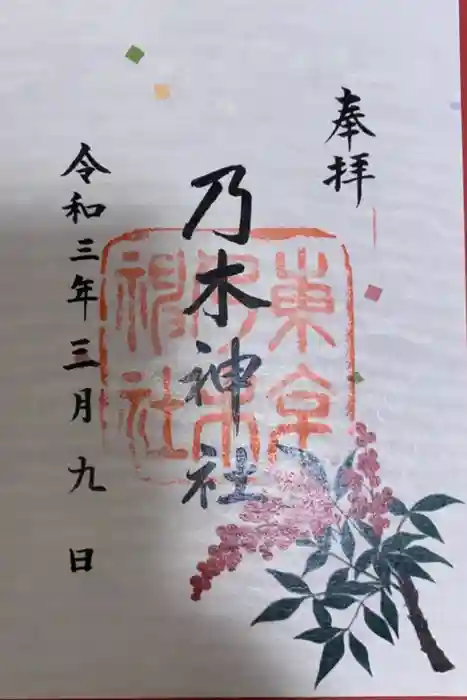 奉拝
乃木神社
東京
乃木
神社
令和三年三月九日